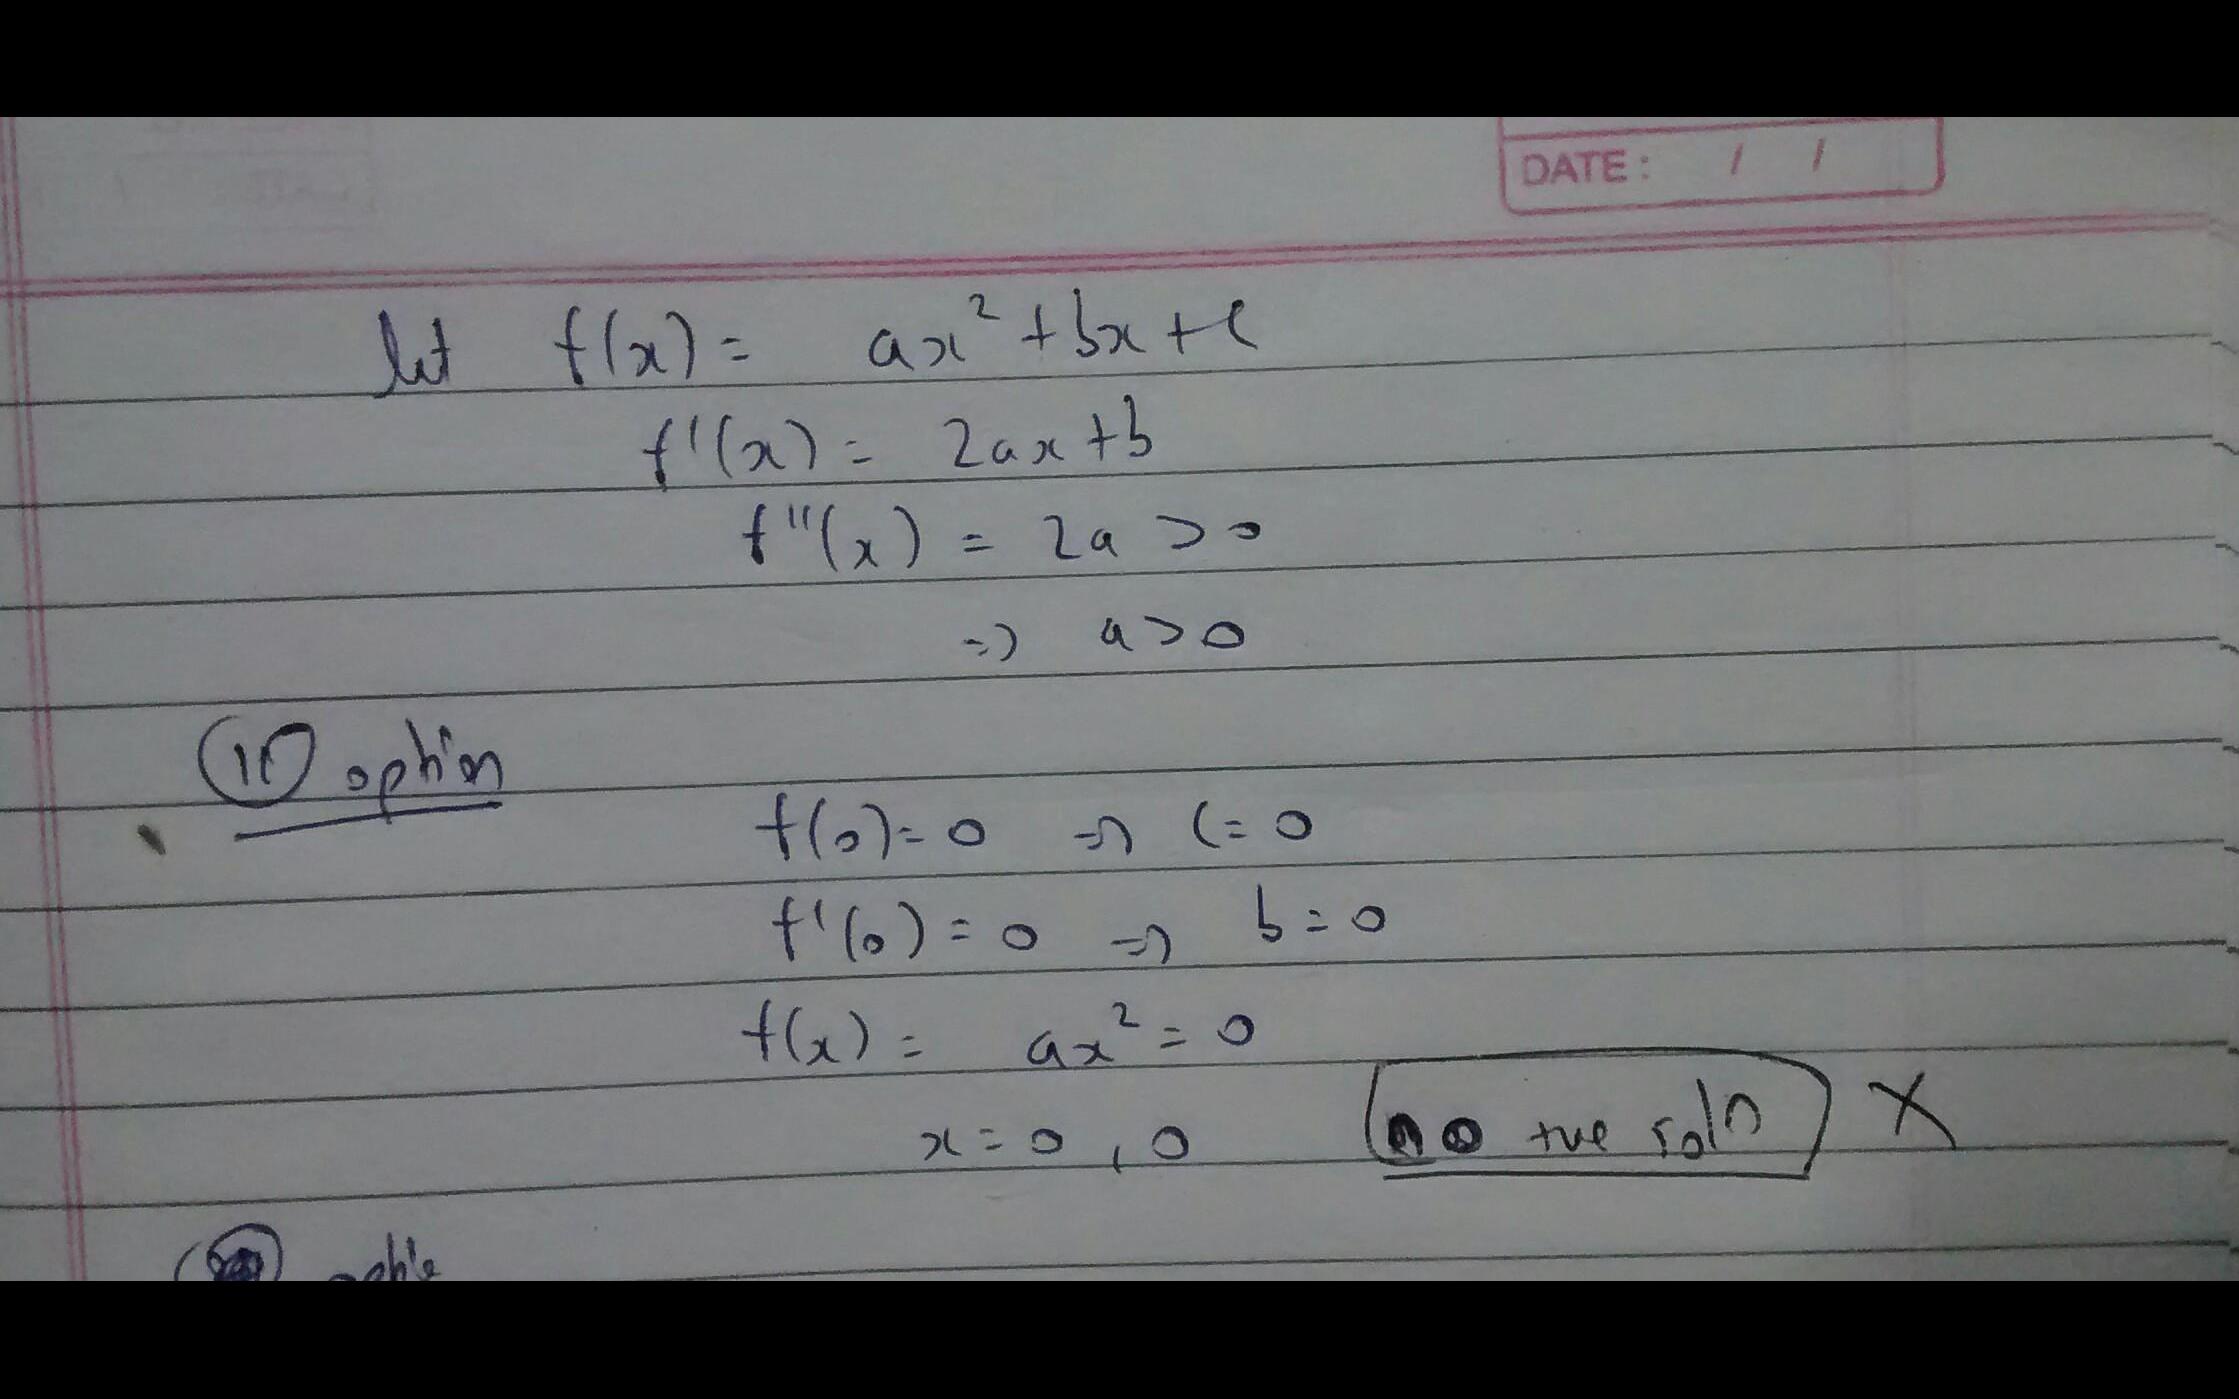 DATE: / /
let f(x) = ax² + bx + c
f'(x) = 2ax + b
f''(x) = 2a > 0
=> a > 0
(11) option
f(0) = 0 => c = 0
f'(0) = 0 => b = 0
f(x) = ax² = 0
x = 0, 0 no +ve soln X